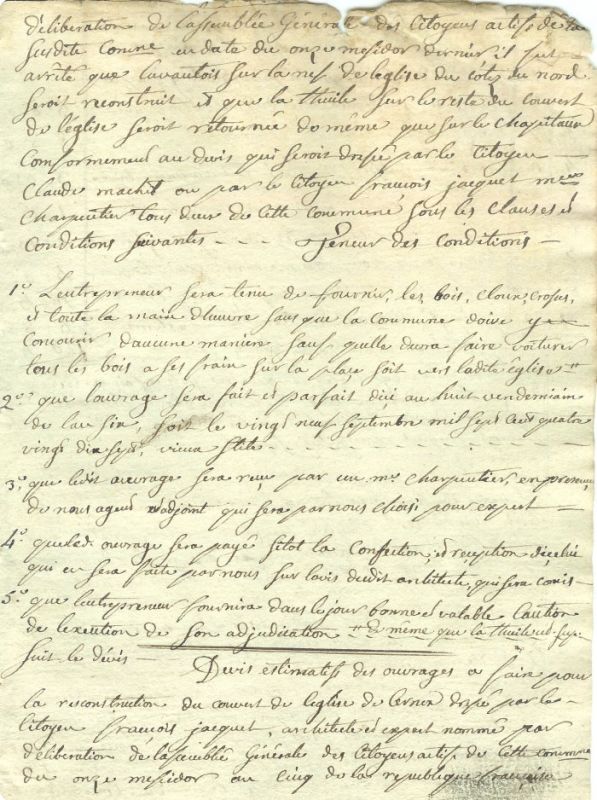 déliberation de Lassemblée Générale des Citoyens actifs de la
susdite comne en date du onze messidor dernier il fut
arrêté que Lavantois sur la nef de leglise du côté du nord
seroit reconstruit et que la thuile sur le reste du couvert
de léglise seroit retournée de même que sur le chapitaux
Conformement au devis qui seroit dressé par le Citoyen
Claude machet ou par le Citoyen francois jacquet mtres
Charpentier tous deux de cette commune sous les clauses et
Conditions suivantes - - - Teneur des conditions -
1º Lentrepreneur sera tenu de fournir, les bois, cloux, crosus,
et toute la main d'heuvre sans que la commune doive y
concourir daucune maniere sauf quelle devra faire voiturer
tous les bois a ses frais sur la place soit vers ladite église
2º que louvrage sera fait et parfait dici au huit vendemiaire
de lan six, soit le vingt neuf septembre mil sept cent quatre
vingt dix sept, vieux stile
3º que ledit ouvrage sera reçu par un mtre charpentier, en presence
de nous agent et adjoint qui sera par nous choisi pour expert
4º que led. ouvrage sera payé sitot la confection, et reception dicelui
qui en sera faite par nous sur lavis dudit architecte, qui sera
5º que lentrepreneur fournira dans le jour bonne et valable Caution
de lexecution de son adjudication de même que la thuile
suit le dévis -
Devis estimatif des ouvrages a faire pour
la reconstruction du couvert de leglise de Cernex dressé par le
Citoyen francois jacquet, architecte et expert nommé par
déliberation de lassemblée Générale des Citoyens actifs de cette commune
du onze messidor an cinq de la republique française